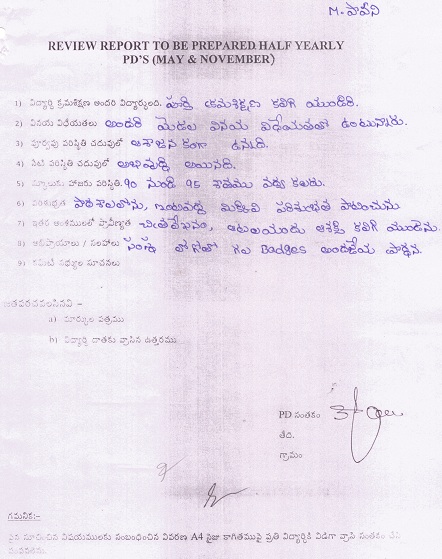 M. పావని
REVIEW REPORT TO BE PREPARED HALF YEARLY
PD'S (MAY & NOVEMBER)
1) విద్యార్థి క్రమశిక్షణ అందరి విద్యార్థులది. పూర్తి క్రమశిక్షణ కలిగి యుండిరి.
2) వినయ విధేయతలు అందరి యెడల వినయ విధేయతతో ఉంటున్నారు.
3) పూర్వపు పరిస్థితి చదువులో ఆశాజనకంగా ఉన్నది.
4) నేటి పరిస్థితి చదువులో అభివృద్ధి అయినది.
5) స్కూలుకు హాజరు పరిస్థితి. 90 నుండి 95 శాతము వచ్చు కలరు.
6) పరిశుభ్రత పాఠశాలలోను, ఇంటివద్ద మిక్కిలి పరిశుభ్రత పాటించును
7) ఇతర అంశములలో ప్రావీణ్యత చిత్రలేఖనం, ఆటలయందు ఆసక్తి కలిగి యుండెను.
8) అభిప్రాయాలు / సలహాలు సంస్థ లోగోతో గల Badges అందజేయ ప్రార్థన.
9) కమిటీ సభ్యుల సూచనలు
జతపరచవలసినవి -
a) మార్కుల పత్రము
b) విద్యార్థి దాతకు వ్రాసిన ఉత్తరము
PD సంతకం
తేది.
గ్రామం
గమనిక:-
పైన సూచించిన విషయములకు సంబంధించిన వివరణ A4 సైజు కాగితముపై ప్రతి విద్యార్థికి విడిగా వ్రాసి సంతకం చేసి